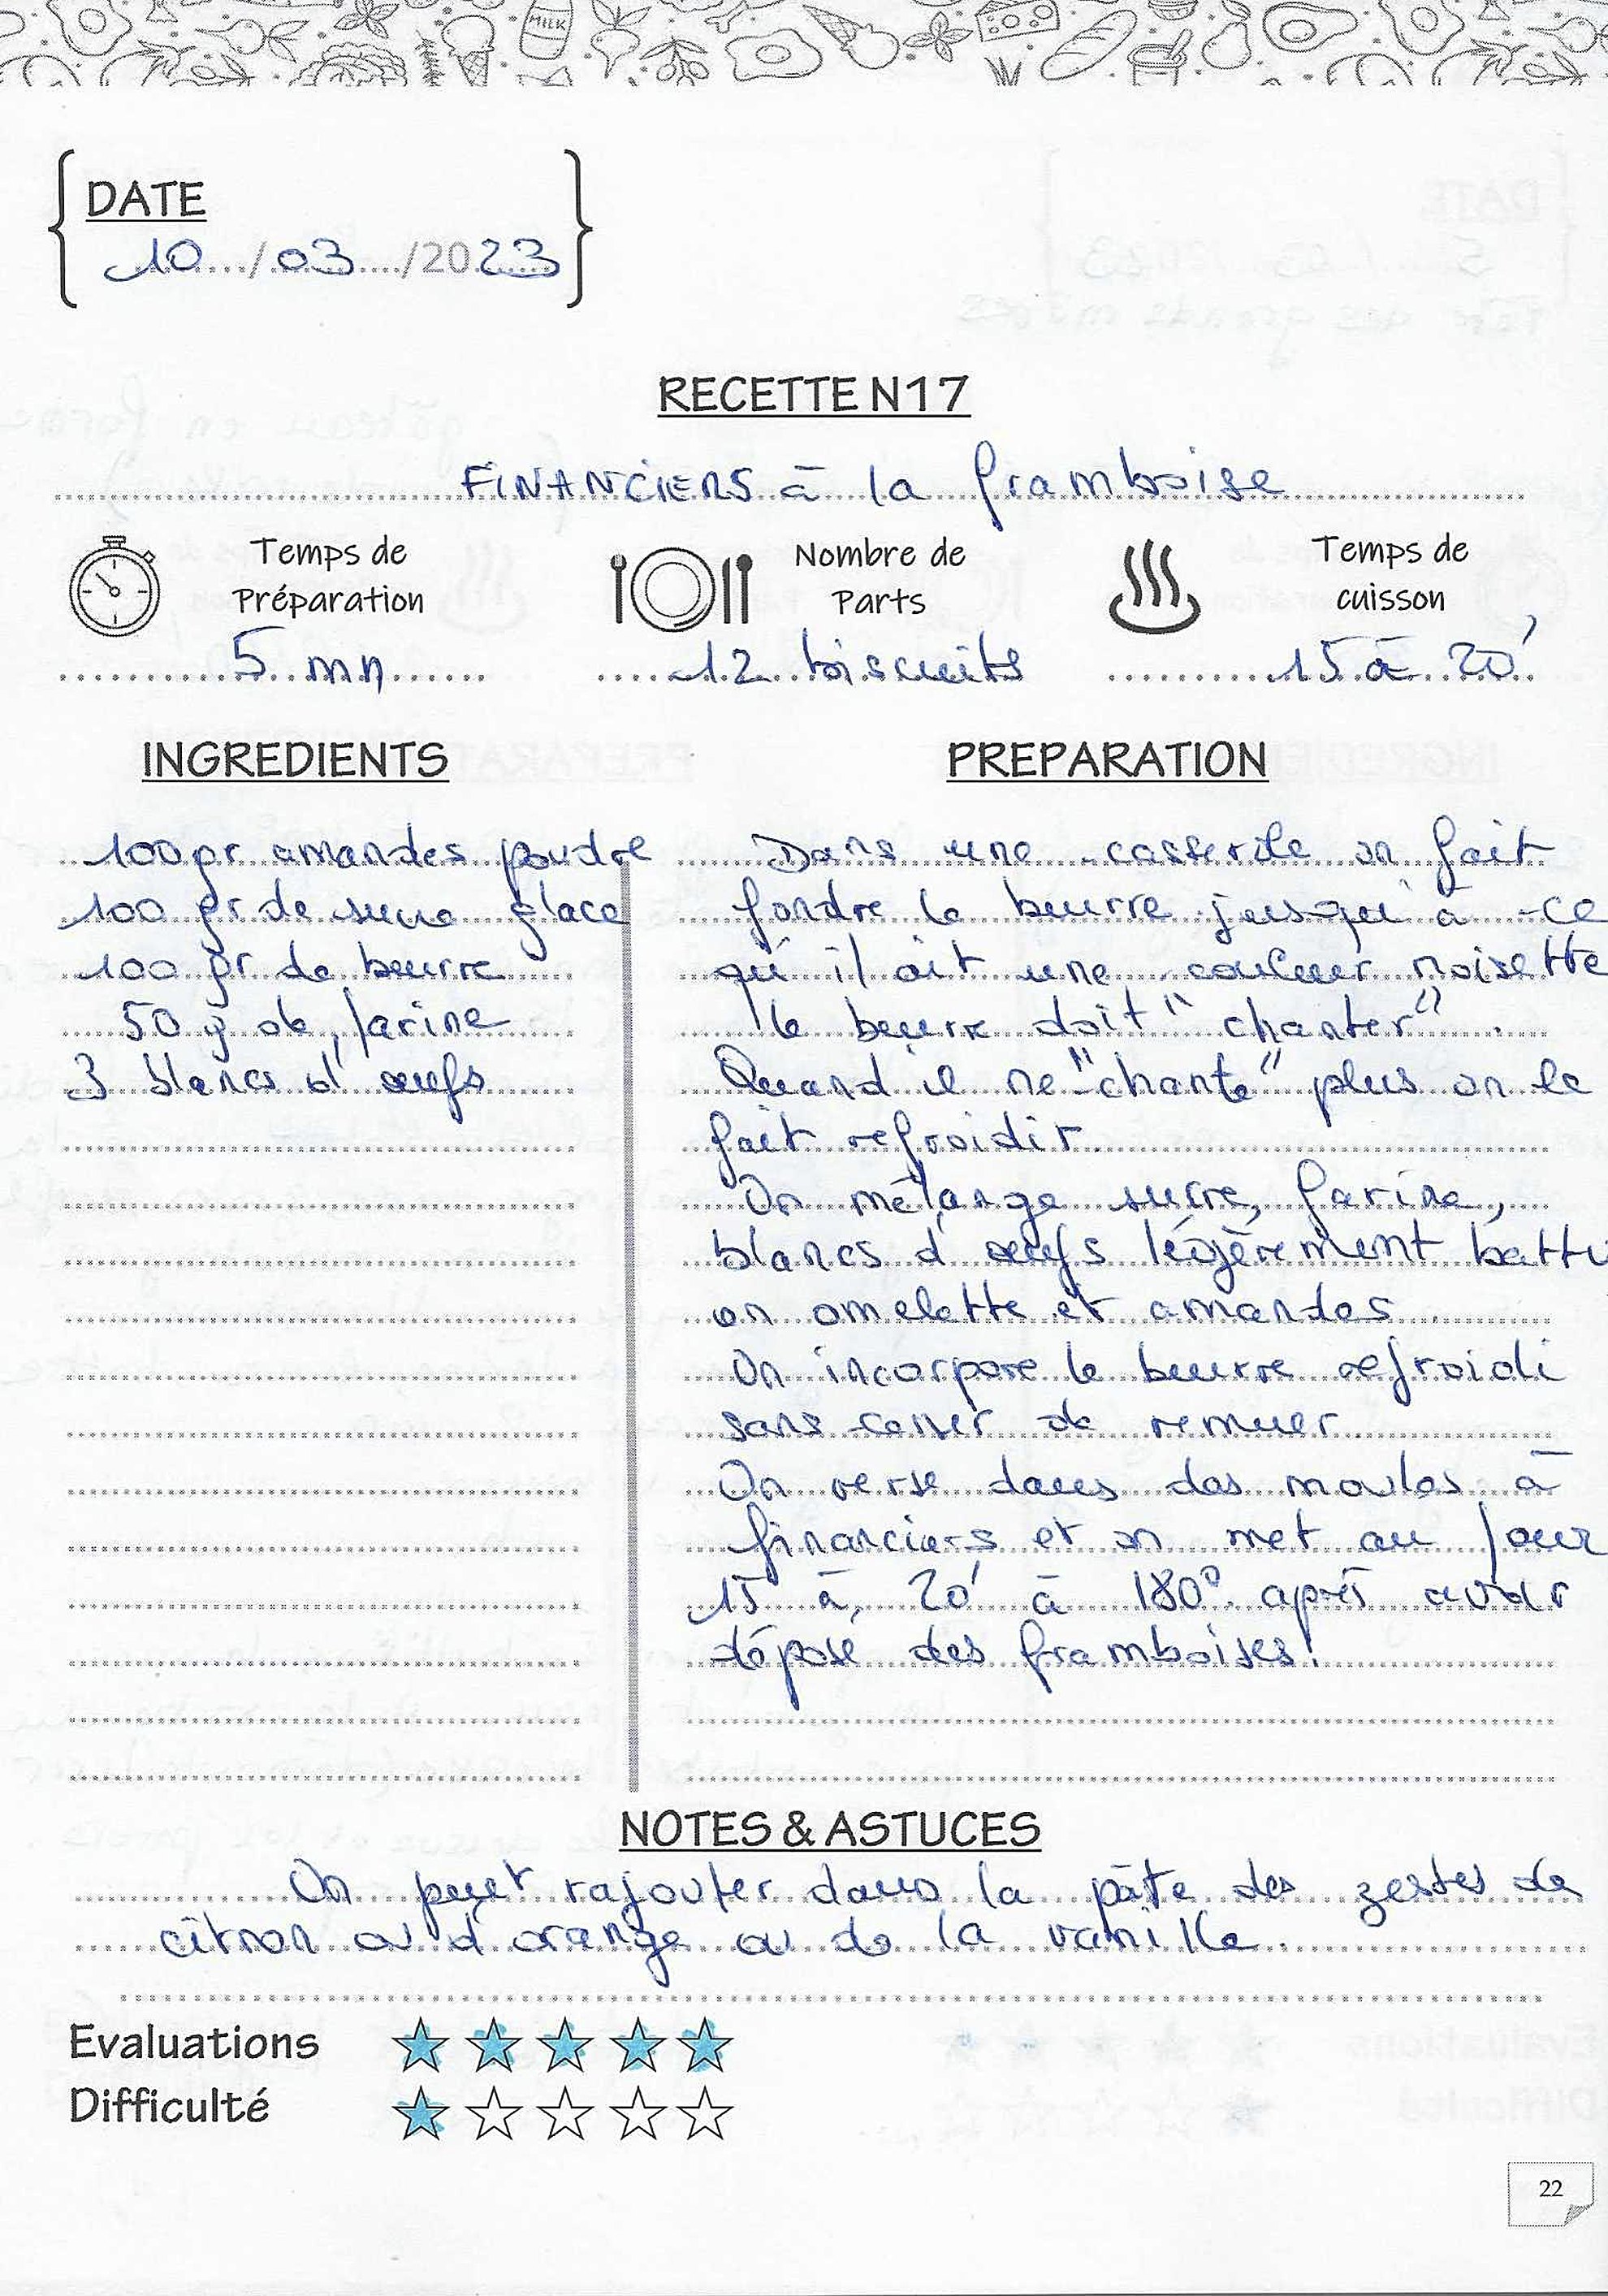 MILK
DATE
10 / 03 / 2023
RECETTE N17
FINANCIERS à la framboise
Temps de Préparation
Nombre de Parts
Temps de cuisson
5 mn
12 biscuits
15 à 20'
INGREDIENTS
100 gr amandes poudre
100 gr de sucre glace
100 gr de beurre
50 g de farine
3 blancs d'oeufs
PREPARATION
Dans une casserole on fait
fondre le beurre jusqu'à ce
qu'il ait une couleur noisette
le beurre doit "chanter".
Quand il ne "chante" plus on le
fait refroidir.
On mélange sucre, farine,
blancs d'oeufs légèrement battu
en omelette et amandes.
On incorpore le beurre refroidi
sans cesser de remuer.
On verse dans des moules à
financiers et on met au four
15 à 20' à 180° après avoir
déposé des framboises!
NOTES & ASTUCES
On peut rajouter dans la pâte des zestes de
citron ou d'orange ou de la vanille.
Evaluations
Difficulté
22